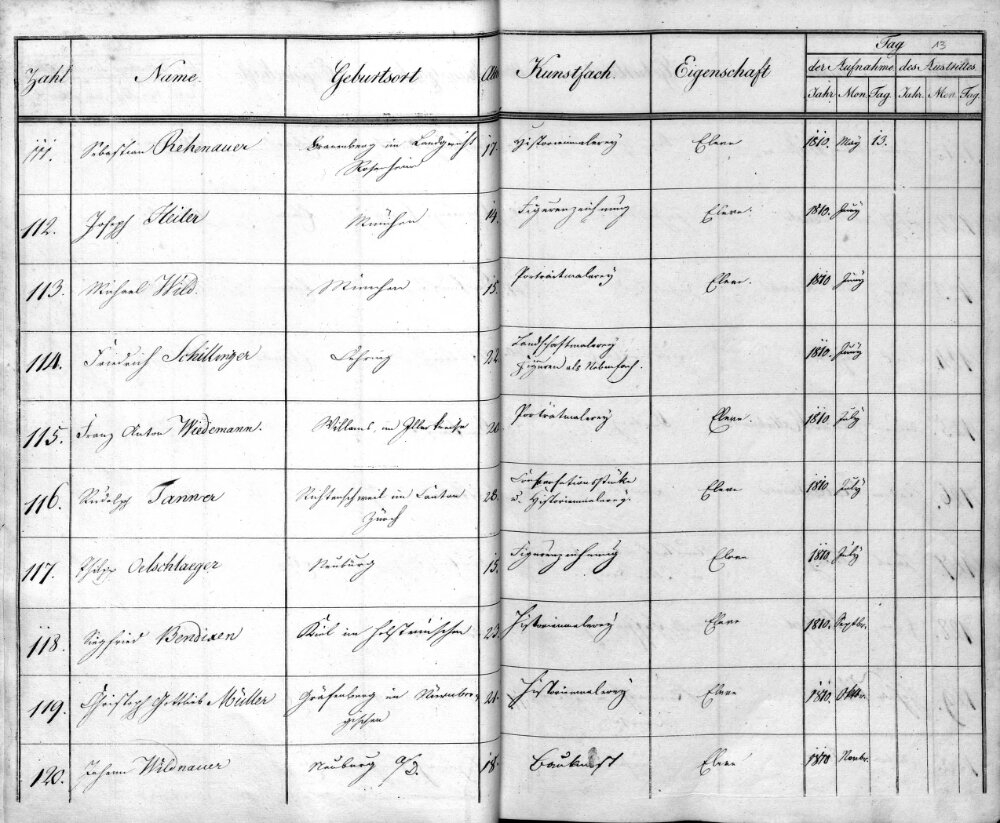 13
Zahl Name. Geburtsort Alter Kunstfach. Eigenschaft Tag
der Aufnahme des Austrittes
Jahr Mon. Tag. Jahr. Mon. Tag.
111. Sebastian Rehenauer im Landgericht Rosenheim 17. Historienmalerey Eleve 1810. May 13.
112. Joseph Heiler München 14. Figurenzeichnung Eleve. 1810. Juny
113. Michael Wild. München 15. Portraitmalerey Eleve. 1810 Juny
114. Friedrich Schillinger Oehring 22. Landschaftmalerey
Figuren als Nebenfach. 1810. Juny
115. Franz Anton Wiedemann. im Illerkreise 20. Porträtmalerey Eleve 1810. July
116. Rudolph Tanner Richterschweil im Canton
Zürch 28. Conversationsstüke
u. Historienmalerey. Eleve 1810 July
117. Philipp Oelschlaeger Neuburg 15. Figurenzeichnung Eleve 1810. July
118. Siegfried Bendixen Kiel im Holsteinischen 23. Historienmalerey Eleve 1810. Septbr.
119. Christoph Gottlieb Müller Gräfenberg im Nürnber-
gischen 21. Historienmalerey Eleve 1810. Oktbr.
120. Johann Wildnauer Neuburg a/D. 18. Baukunst Eleve 1810 Novbr.